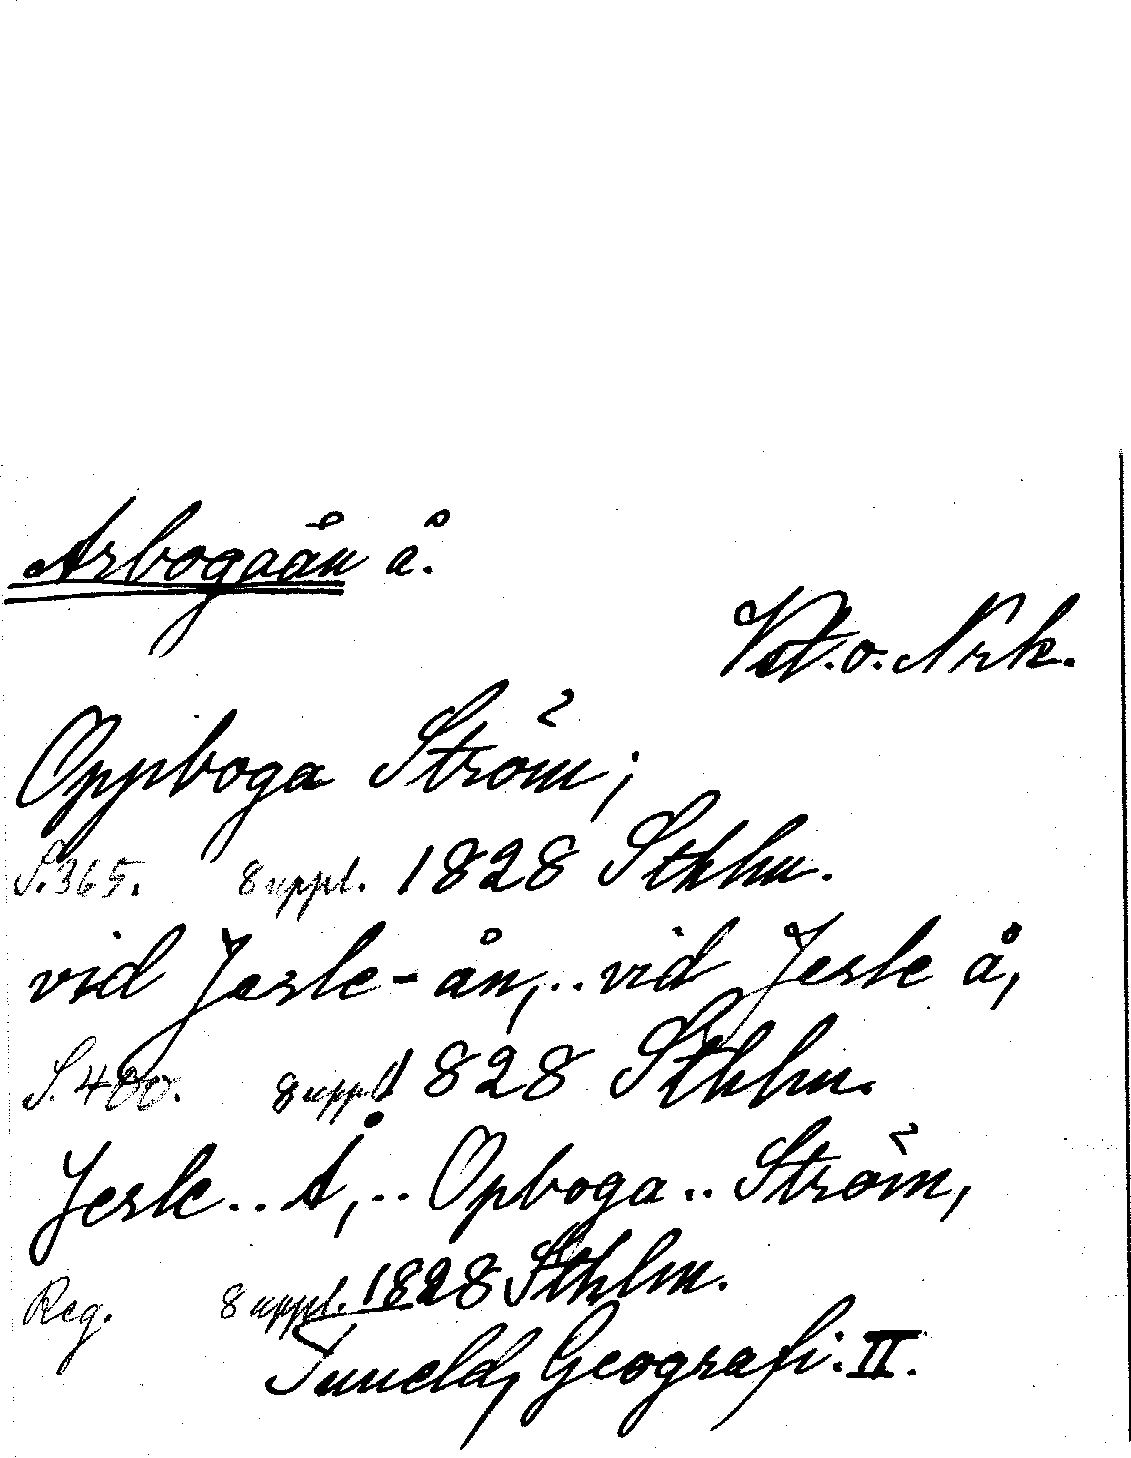 Arbogaån å.
Vstm. o. Nrk.
Oppboga Ström;
S. 365. 8 uppl. 1828 Sthlm.
vid Jerle-ån,.. vid Jerle å,
S. 400. 8 uppl. 1828 Sthlm.
Jerle.. Å,.. Opboga.. Ström,
Reg. 8 uppl. 1828 Sthlm.
Tuneld, Geografi. II.